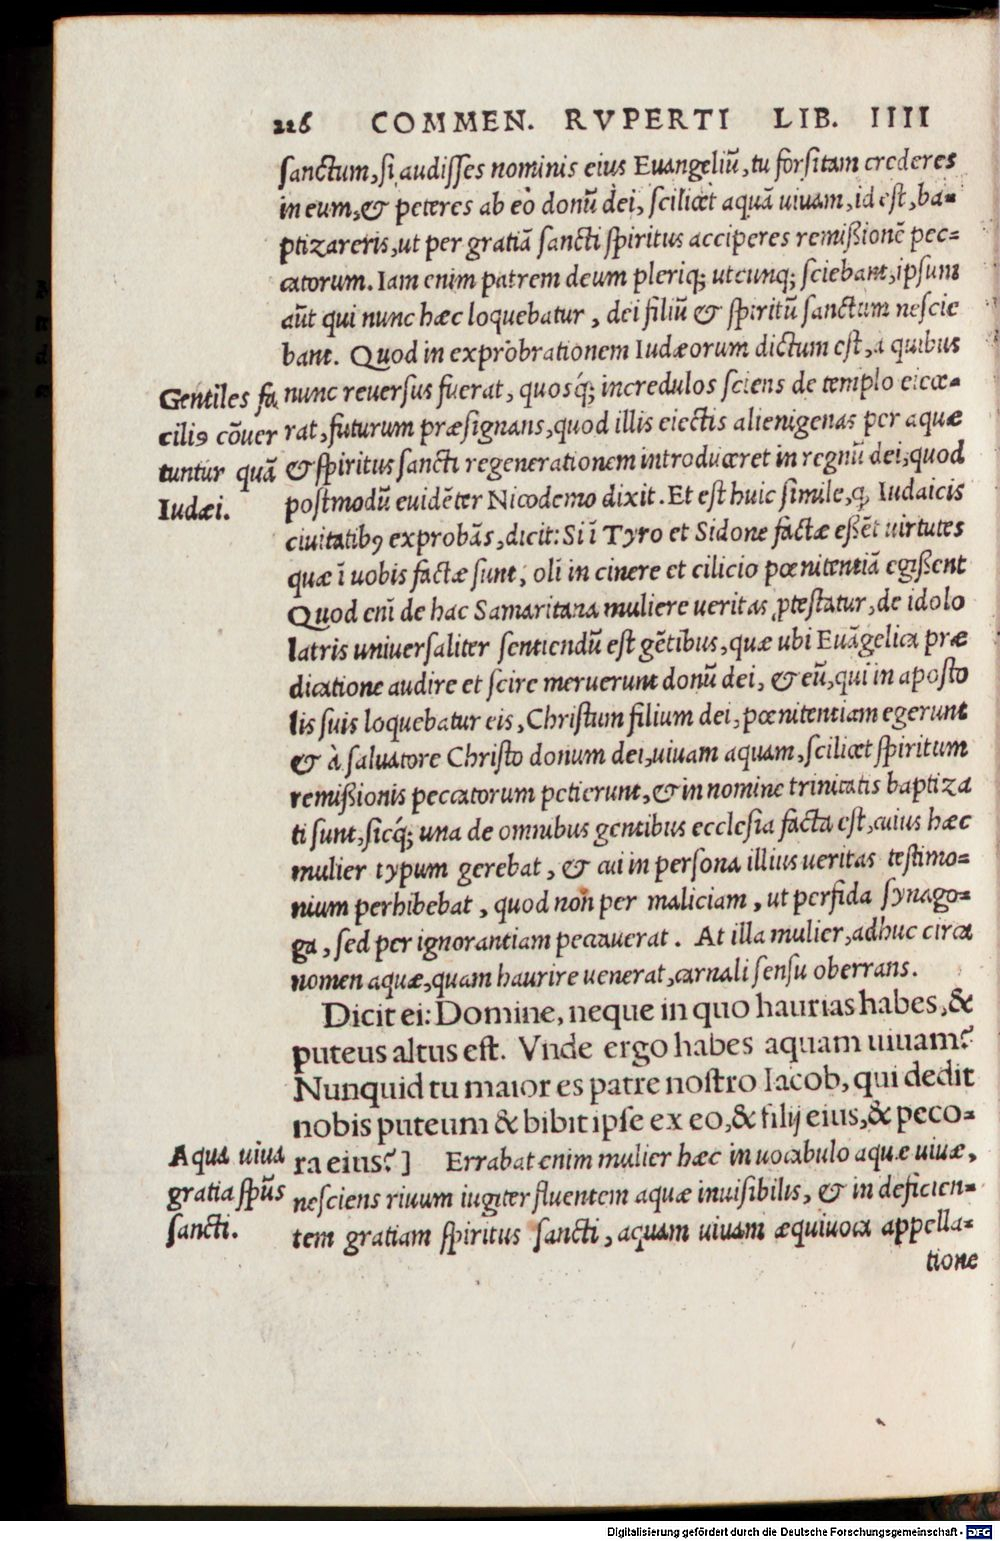 226 COMMEN. RVPERTI LIB. IIII
sanctum, si audisses nominis eius Euangeliũ, tu forsitam crederes
in eum, & peteres ab eo donũ dei, scilicet aquã uiuam, id est, ba-
ptizareris, ut per gratiã sancti spiritus acciperes remißionẽ pec-
catorum. Iam enim patrem deum pleriq; utcunq; sciebant, ipsum
aũt qui nunc hæc loquebatur, dei filiũ & spiritũ sanctum nescie
bant. Quod in exprobrationem Iudæorum dictum est, à quibus
nunc reuersus fuerat, quosq́; incredulos sciens de templo eiece-
rat, futurum præsignans, quod illis eiectis alienigenas per aquæ
& spiritus sancti regenerationem introduceret in regnũ dei, quod
postmodũ euidẽter Nicodemo dixit. Et est huic simile, q, Iudaicis
ciuitatibꝰ exprobãs, dicit: Si ĩ Tyro et Sidone factæ eßẽt uirtutes
quæ ĩ uobis factæ sunt, oli in cinere et cilicio pœnitentiã egißent
Quod enĩ de hac Samaritana muliere ueritas ꝓtestatur, de idolo
latris uniuersaliter sentiendũ est gẽtibus, quæ ubi Euãgelica præ
dicatione audire et scire meruerunt donũ dei, & eũ, qui in aposto
lis suis loquebatur eis, Christum filium dei, pœnitentiam egerunt
& à saluatore Christo donum dei, uiuam aquam, scilicet spiritum
remißionis peccatorum petierunt, & in nomine trinitatis baptiza
ti sunt, sicq́; una de omnibus gentibus ecclesia facta est, cuius hæc
mulier typum gerebat, & cui in persona illius ueritas testimo-
nium perhibebat, quod non per maliciam, ut perfida synago-
ga, sed per ignorantiam peccauerat. At illa mulier, adhuc circa
nomen aquæ, quam haurire uenerat, carnali sensu oberrans.
Dicit ei: Domine, neque in quo haurias habes, &
puteus altus est. Vnde ergo habes aquam uiuam?
Nunquid tu maior es patre nostro Iacob, qui dedit
nobis puteum & bibit ipse ex eo, & filij eius, & peco-
ra eius?] Errabat enim mulier hæc in uocabulo aquæ uiuæ,
nesciens riuum iugiter fluentem aquæ inuisibilis, & in deficien-
tem gratiam spiritus sancti, aquam uiuam æquiuoca appella-
tione
Gentiles fa
ciliꝰ cõuer
tuntur quã
Iudæi.
Aqua uiua
gratia spũs
sancti.
Digitalisierung gefördert durch die Deutsche Forschungsgemeinschaft - DFG